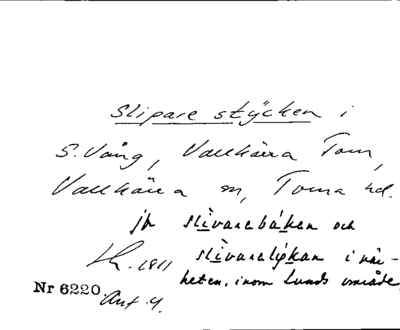 Slipare stycken i
S. Vång, Vallkärra Torn,
Vallkärra sn, Torna hd.
jfr slìvarebáken och
Lh. 1911 slìvarelýkan i när-
heten, inom Lunds område.
Nr 6220. Ant. 4.